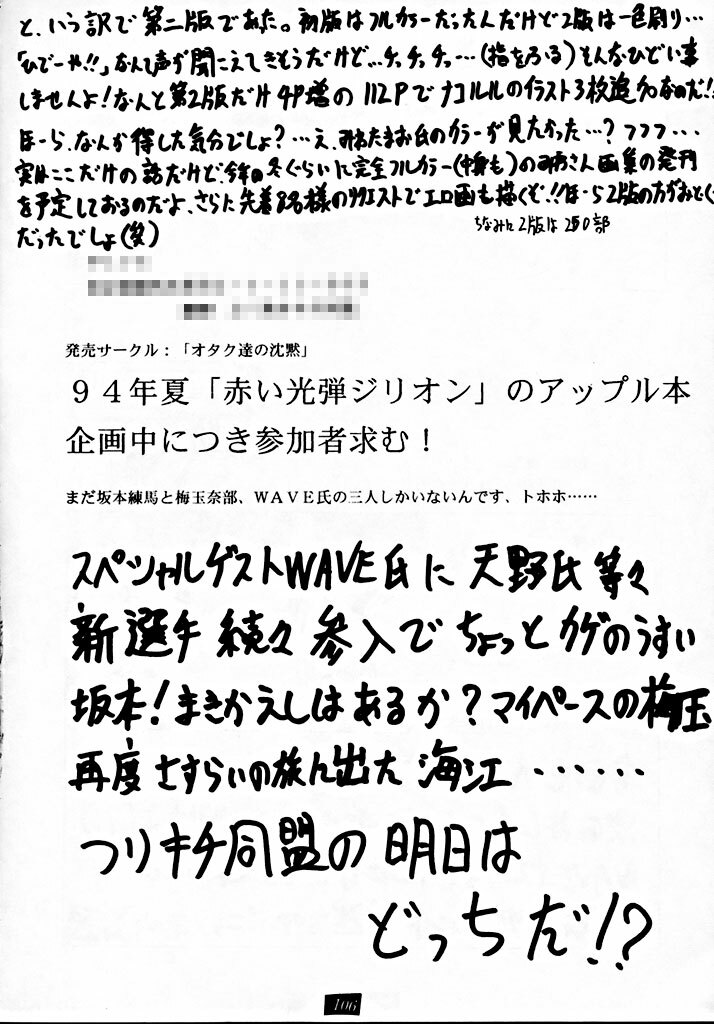 と、いう訳で第二版であた。初版はフルカラーだったんだけど2版は一色刷り…
「ひでーや!!」なんて声が聞こえてきそうだけど…チ,チ,チ,…(指をふる)そんなひどい事
しませんよ!なんと第2版だけ4P増の112Pでナコルルのイラスト3枚追加なのだ!!
ほーら、なんか得した気分でしょ?…え、みねたまお氏のカラーが見たかった…?フフフ…
実はここだけの話だけど、今年の冬ぐらいに完全フルカラー(中身も)の さん画集の発刊
を予定しておるのだよ、さらに先着 名様のリクエストでエロ画も描くぞ!!ほーら2版の方がおとく
だったでしょ(笑)
ちなみに2版は 部
発売サークル:「オタク達の沈黙」
94年夏「赤い光弾ジリオン」のアップル本
企画中につき参加者求む!
まだ坂本練馬と梅玉奈部、WAVE氏の三人しかいないんです、トホホ……
スペシャルゲストWAVE氏に天野氏等々
新選手続々参入でちょっとカゲのうすい
坂本!まきかえしはあるか?マイペースの梅玉
再度さすらいの旅に出た海江……
つりキチ同盟の明日は
どっちだ!?
106